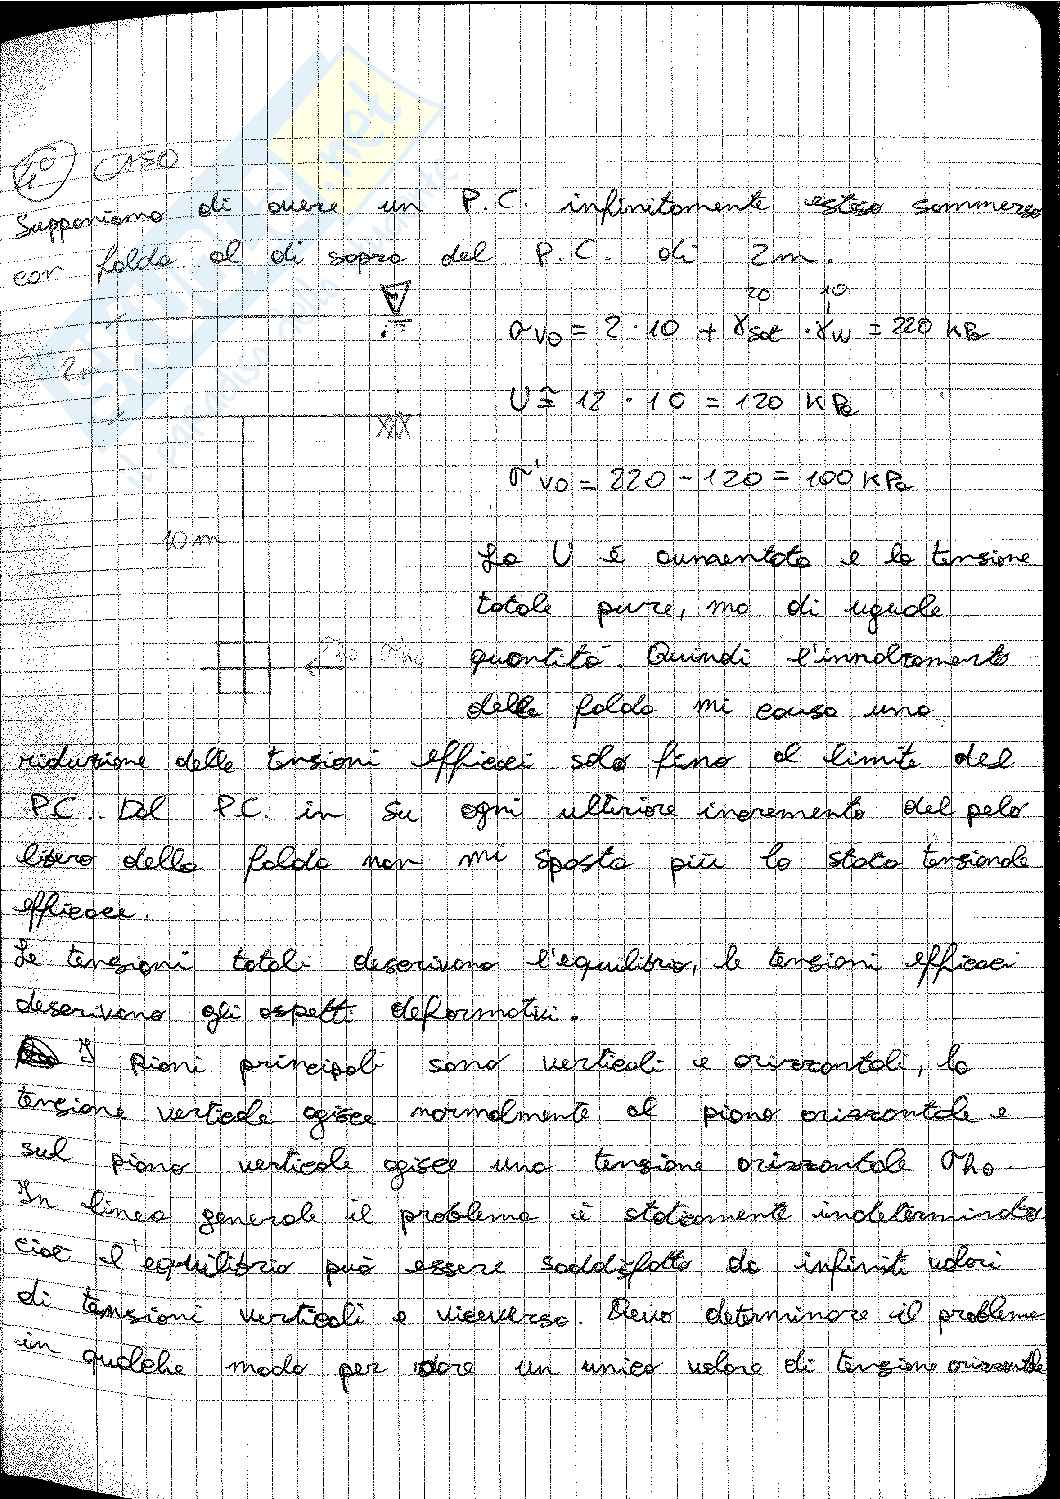 4° CASO
Supponiamo di avere un P.C. infinitamente esteso sommerso
con falda al di sopra del P.C. di 2m.
20 10
σvo = 2 · 10 + γsat · γw = 220 KPa
2m
U = 12 · 10 = 120 KPa
σ'vo = 220 - 120 = 100 KPa
10 m
La U è aumentata e la tensione
totale pure, ma di uguale
quantità. Quindi l'innalzamento
σho
della falda mi causa una
riduzione delle tensioni efficaci solo fino al limite del
P.C.. Dal P.C. in su ogni ulteriore incremento del pelo
libero della falda non mi sposta più lo stato tensionale
efficace.
Le tensioni totali descrivono l'equilibrio, le tensioni efficaci
descrivono gli aspetti deformativi.
I piani principali sono verticali e orizzontali, la
tensione verticale agisce normalmente al piano orizzontale e
sul piano verticale agisce una tensione orizzontale σho.
In linea generale il problema è staticamente indeterminato
cioè l'equilibrio può essere soddisfatto da infiniti valori
di tensioni verticali e viceversa. Devo determinare il problema
in qualche modo per dare un unico valore di tensione orizzontale